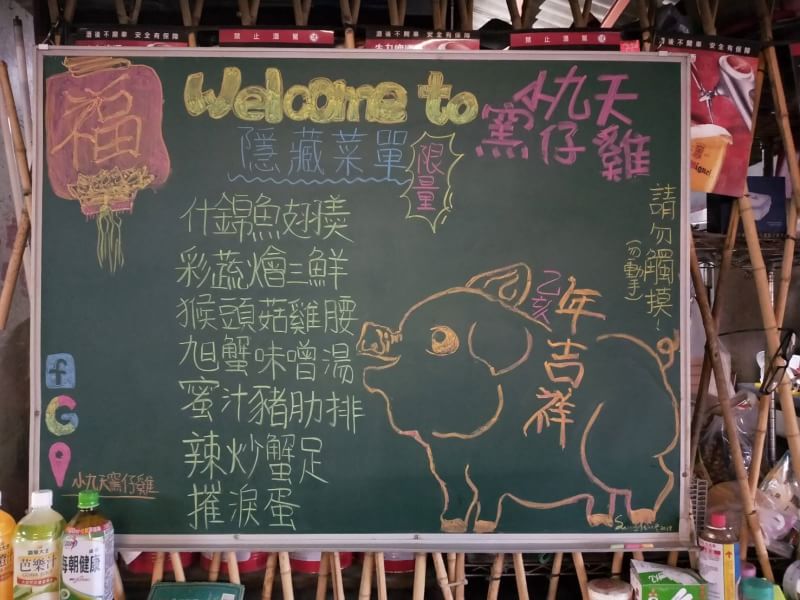 酒後不開車 安全有保障
禁止酒駕
酒後不開車 安全有保障
禁止酒駕
酒後不開車 安全有保障
福
Welcome to
小九天
窯仔雞
隱藏菜單
限量
請勿觸摸!
(勿動手)
什錦魚翅羹
彩蔬燴三鮮
猴頭菇雞腰
旭蟹味噌湯
蜜汁豬肋排
辣炒蟹足
摧淚蛋
乙亥
年吉祥
f
G
小九天窯仔雞
芭樂汁
每朝健康